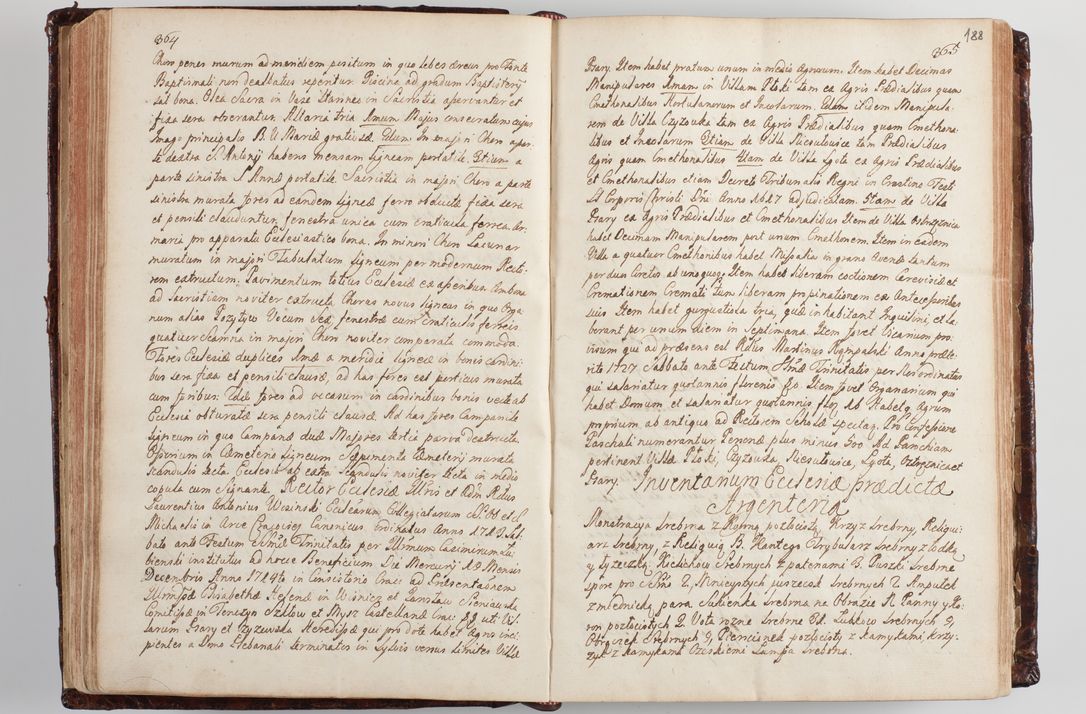 364
Choro penes murum ad meridiem positum in quo lebes æreus pro Fonte
Baptismali non dealbatus reperitur. Piscina ad gradum Baptisterij
sat bona. Olea Sacra in Vase Stanneo in Sacristia aservantur et
fida sera obserantur. Altaria tria Unum Majus consecratum cujus
Imago principalis B. V. Mariæ gratiosæ. In majori Choro a par
te dextra S. Antonij habens mensam ligneam portatile. Etiam a
parte sinistra S. Annæ portatile. Sacristia in majori Choro a parte
sinistra murata fores ad eandem ligneæ ferro obductæ fida sera
et pensili clauduntur, fenestra unica cum craticula ferrea. Ar,
maria pro apparatu Eclesiastico bona. In minori Choro Lacunar
muratum in majori Tabulatum ligneum per modernum Recto,
rem extructum. Pavimentum totius Eclesiæ ex aperibus. Ambona
ad Sacristiam noviter extructa Chorus novus ligneus in quo Orga,
num alias Pozytyw Vocum fenestræ cum Craticulis ferreis
quatuor Scamna in majori Choro noviter comparata commoda.
Fores Eclesiæ duplices Unæ a meridie ligneæ in bonis cardini,
bus sera fida et pensili clausæ, ad has fores est porticus murata
cum foribus. fores ad occasum in cardinibus bonis vecte ab
Eclesia obturatæ sera pensili clausæ. Ad has fores Campanile
ligneum in quo Campanæ duæ Majores tertia parva destructa
Ossorium in Cæmeterio ligneum Sepimenta Cæmeterij murata
scandulis tecta. Eclesia ab extra Scandulis noviter tecta in medio
copula cum Signante. Rector Eclesiæ Illris et Rdus
Laurentius Antonius Wosinski Eclesiarum Collegiatarum et S
Michaelis in Arce Canonicus ordinatus Anno Sab,
bato ante Festum Trinitatis per Illmum Casimirum Lu,
bienski institutus ad hocce Beneficium Die Mercurij Mensis
Decembris Anno in Consistorio Crac: ad Præsentatonem
Illmæ Elisabethæ in Wisnicz et Jarosław Sieniawska
Comitissæ in Tenczyn Szkłow et Mysz Castellanæ Crac: uti Vi,
larum Grary et Czyzowska Heredissæ qui pro dote habet Agros inci,
pientes a Domo Plebanali terminatos in Sylvis versus limites Villæ
188
365
Grary. Item habet pratum unum in medio Agrorum. Item habet Decimas
Manipulares Unam in Villam Płoki tam ex Agris Prædialibus quam
Cmethonalibus Hortulanorum et Inculorum. ibidem Manipula,
rem de Villa Czyzowka tam ex Agris Prædialibus quam Cmethona,
libus et Incolarum Etiam de Villa tam Prædialibus
Agris quam Cmethonalibus de Villa Lgota ex Agris Prædialibus
et Cmethonalibus etiam Decreto Tribunalis Regni in Crastino Festi
SS Corporis Christi Dni Anno 1617 adjudicatam. de Villa
Grary ex Agris Prædialibus et Cmethonalibus Item de Villa Ostręznica
habet Decimam Manipularem post unum Cmethonem. Item in eadem
Villa a quatuor Cmethonibus habet Missalia in grano Avenæ tantum
per duo Coretos ab unoquoq; Item habet liberam coctionem Cerevisiæ et
Cremationem Cremati tum liberam propinationem ex Antecessoribus
suis. Item habet gurgustiola tria, quæ inhabitant Inquilini, et la,
borant per unum diem in Septimana. Item fovet Vicarium pro,
visum qui ad præsens est Rdus Martinus Anno præte
rito 1727 Sabbato ante Festum Trinitatis per ordinatus
qui salariatur quotannis florenis 80. Item fovet Organarium qui
habet Domum et salariatur quotannis flor Habetq, agrum
proprium ab antiquo ad Rectorem Scholæ spectan. Pro Confessione
Paschali numerantur Personæ plus minus 900 Ad Parochiam
pertinent Villæ Płoki, Czyzowka, Lgota, Ostręznica et
Grary. Inventarium Ecclesiæ prædictæ
Argenteria
Monstracya Srebrna z Melchizedech pozłocisty Krzyz Srebrny, Reliqui
arz Srebrny, z Reliquią B. Kantego Trybularz Srebrny z łodką
y łyzeczką. Kielichow Srebrnych z patenami 3. Puszki Srebrne
spore pro Cibo 2, Mnieyszych puszeczek Srebrnych 2 Ampułek
z miednicką para Sukienka Srebrna na Obrazie N. Panny y Ko,
ron pozłocistych 2. Vota rozne Srebrne Łubkow Srebrnych 9,
Obrączek Srebrnych 9, Pierscionek pozłocisty z kamykami Krzy,
zyk z kamykami Czeskiemi Lampa Srebrna.